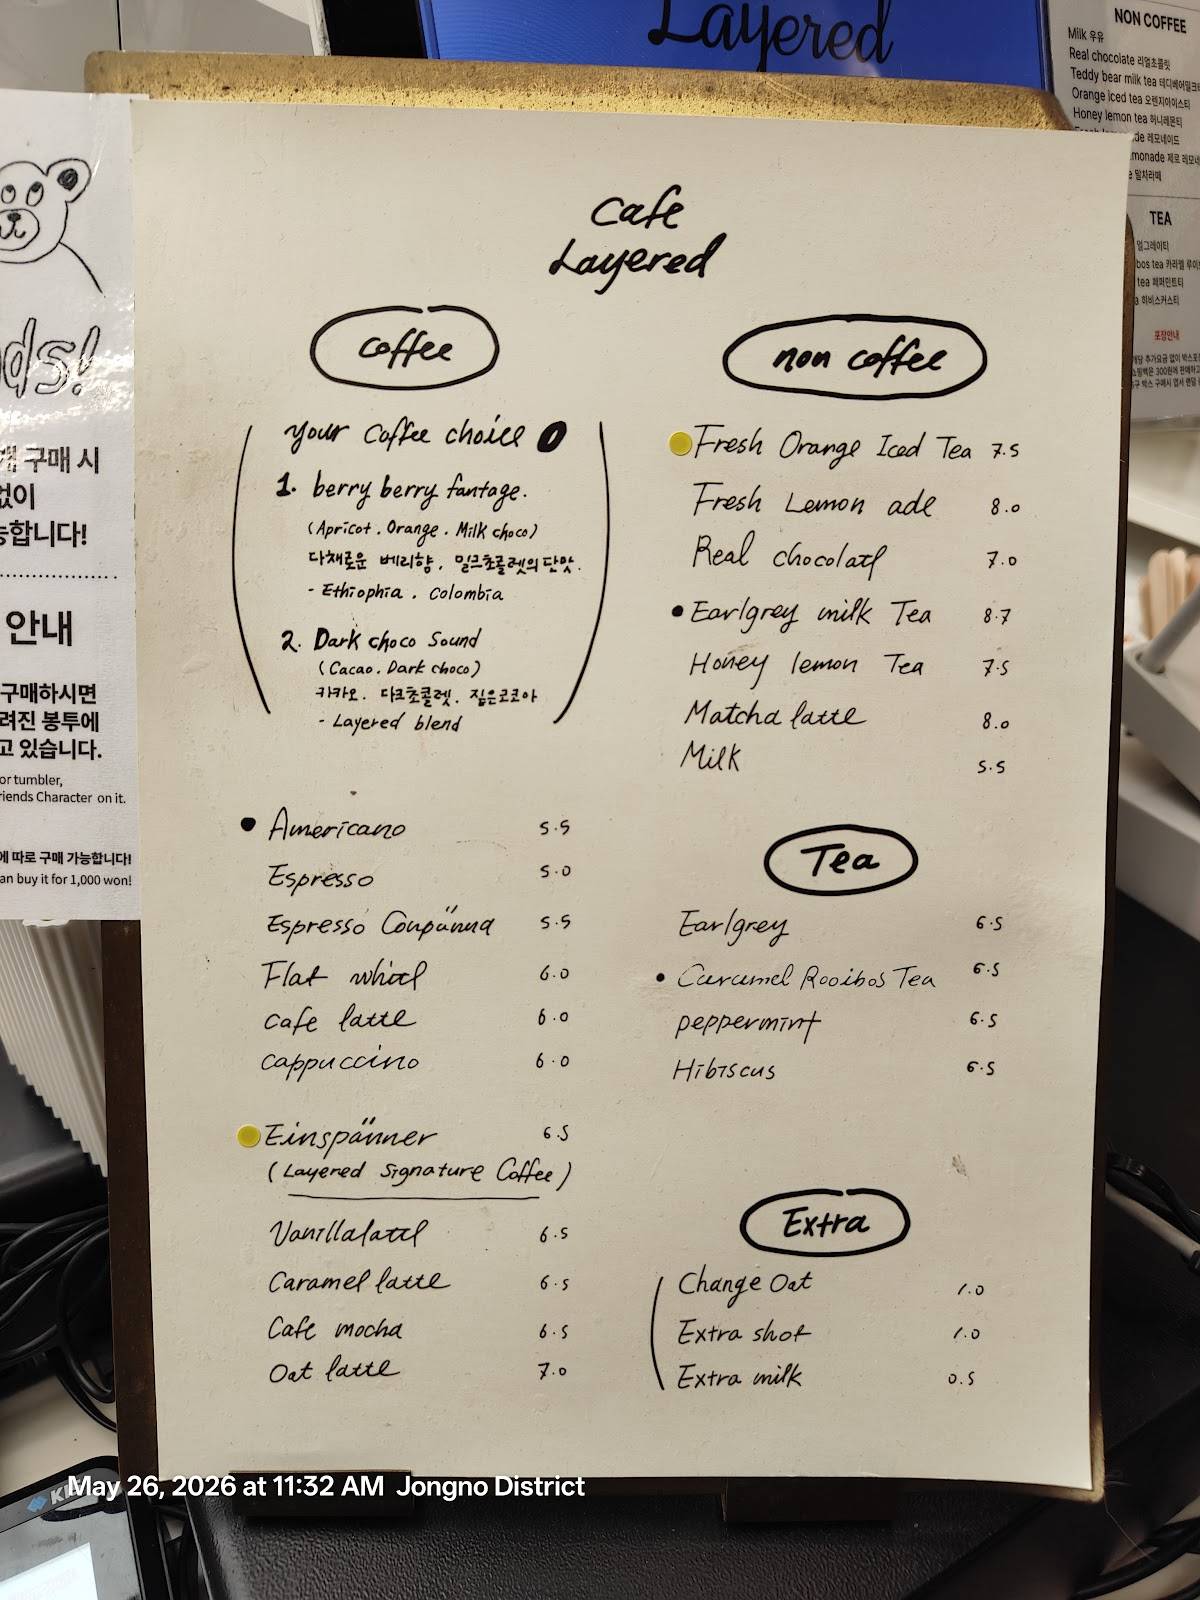 Layered
NON COFFEE
Milk 우유
Real chocolate 리얼초콜릿
Teddy bear milk tea 테디베어밀크
Orange iced tea 오렌지아이스티
Honey lemon tea 허니레몬티
de 레모네이드
monade 제로 레모네
e 말차라떼
TEA
얼그레이티
bos tea 카라멜 루이
tea 페퍼민트티
a 히비스커스티
포장안내
ds!
구매 시
없이
능합니다!
안내
구매하시면
려진 봉투에
고 있습니다.
or tumbler,
riends Character on it.
에 따로 구매 가능합니다!
an buy it for 1,000 won!
Cafe
Layered
Coffee
your Coffee choice
1. berry berry fantage.
(Apricot . Orange . Milk choco)
다채로운 베리향. 밀크초콜렛의 단맛.
- Ethiophia . Colombia
2. Dark choco Sound
(Cacao. Dark choco)
카카오. 다크초콜렛. 짙은코코아
- Layered blend
Americano 5.5
Espresso 5.0
Espresso Conpänna 5.5
Flat whitel 6.0
Cafe latte 6.0
Cappuccino 6.0
Einspänner 6.5
(Layered Signature Coffee)
Vanilla latte 6.5
Caramel latte 6.5
Cafe mocha 6.5
Oat latte 7.0
non coffee
Fresh Orange Iced Tea 7.5
Fresh Lemon ade 8.0
Real chocolate 7.0
Earlgrey milk Tea 8.7
Honey lemon Tea 7.5
Matcha latte 8.0
Milk 5.5
Tea
Earlgrey 6.5
Caramel Rooibos Tea 6.5
peppermint 6.5
Hibiscus 6.5
Extra
Change Oat 1.0
Extra shot 1.0
Extra milk 0.5
May 26, 2026 at 11:32 AM Jongno District